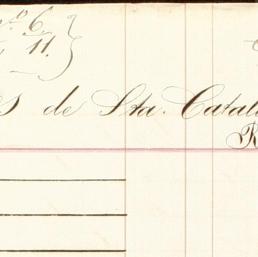 6
11.
s de Sta. Catal
R